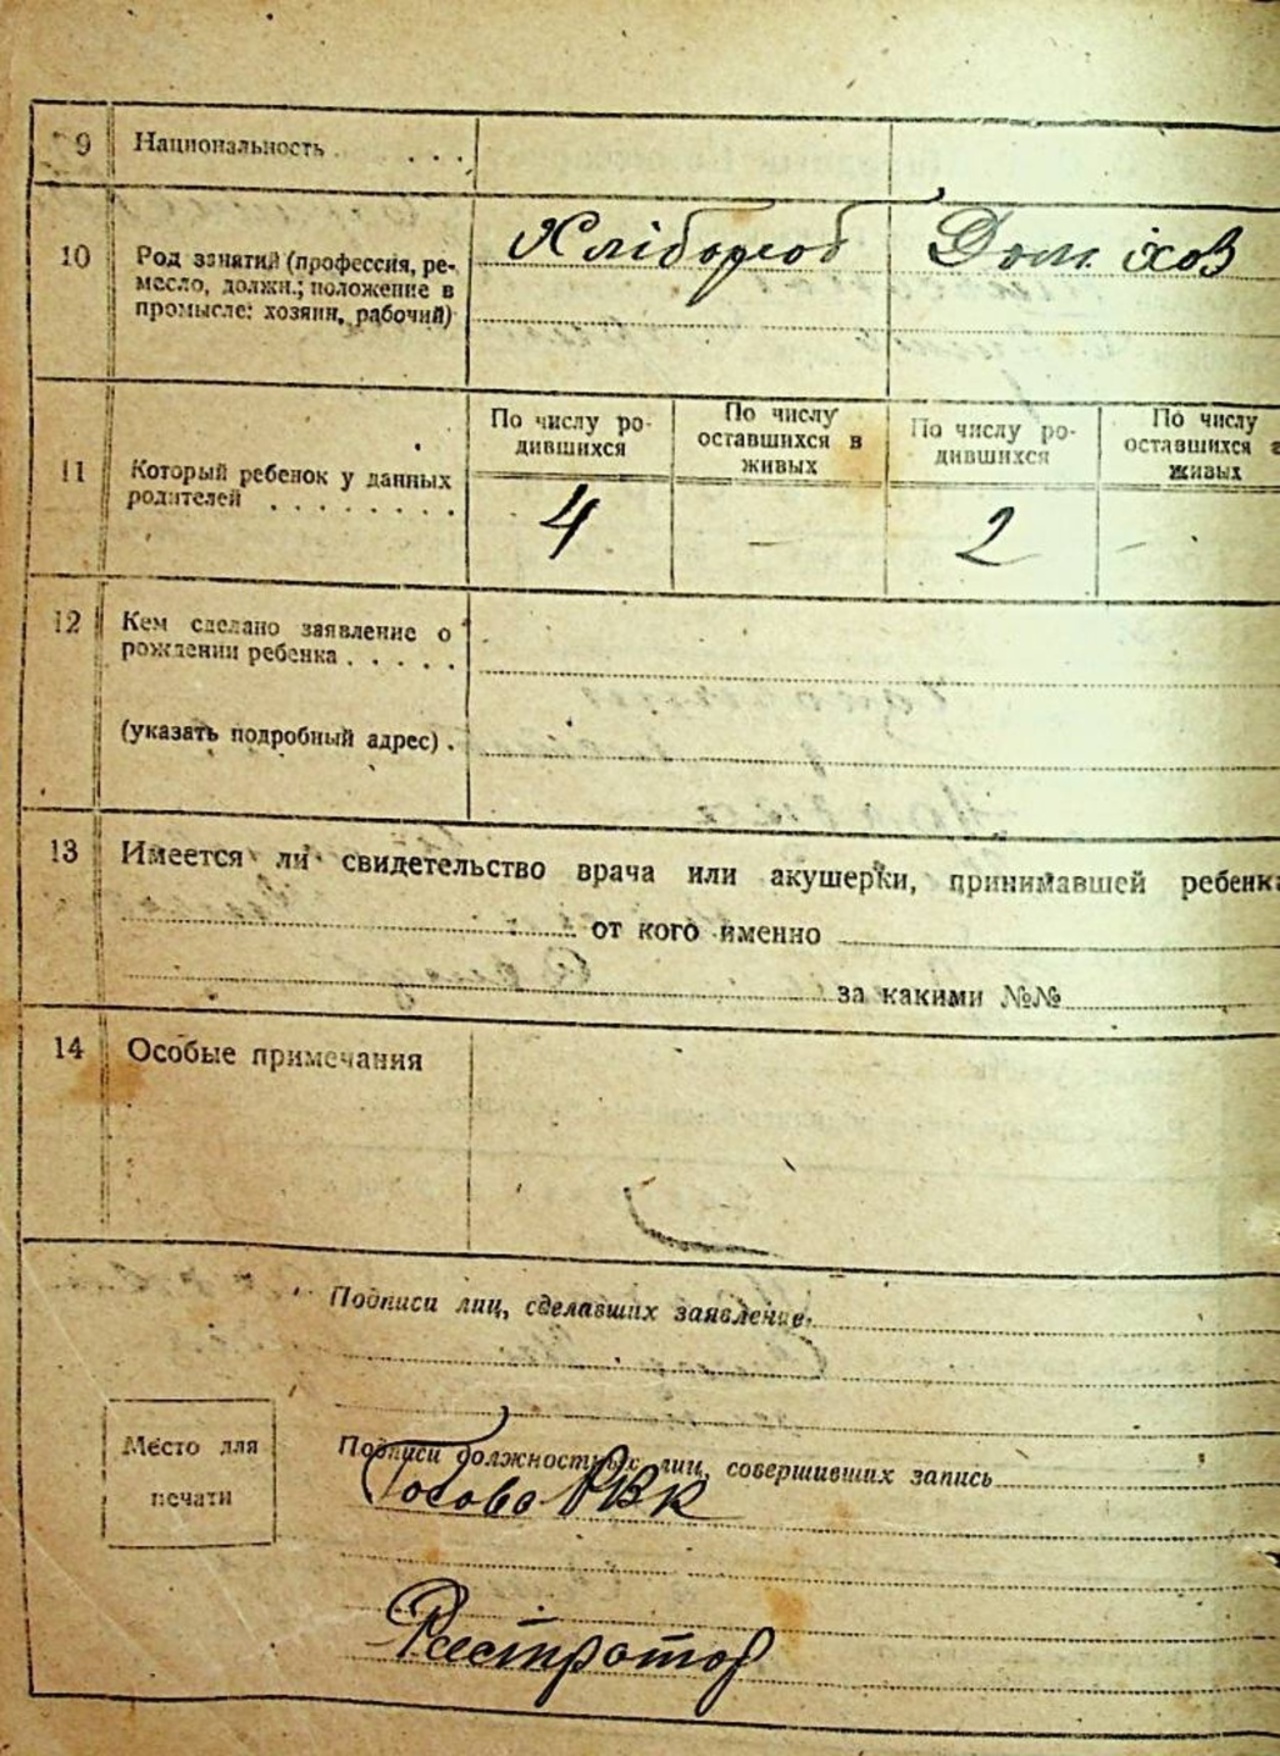 9 Национальность . . . .
10 Род занятий (профессия, ре-
месло, должн.; положение в
промысле: хозяин, рабочий)
Хлібороб Дом. іхов
11 Который ребенок у данных
родителей . . . . . . . .
По числу ро-
дившихся
По числу
оставшихся в
живых
По числу ро-
дившихся
По числу
оставшихся в
живых
4 — 2 —
12 Кем сделано заявление о
рождении ребенка . . . . .
(указать подробный адрес) .
13 Имеется ли свидетельство врача или акушерки, принимавшей ребенка
от кого именно
за какими №№
14 Особые примечания
Подписи лиц, сделавших заявление.
Место для
печати
Подписи должностных лиц, совершивших запись
Голова РВК
Реєстратор